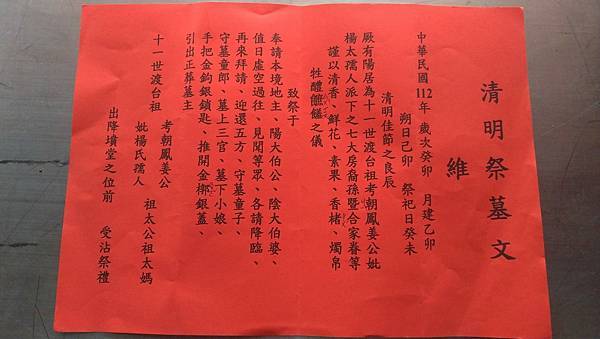 清明祭墓文
維
中華民國112年 歲次癸卯 月建乙卯
朔日己卯 祭祀日癸未
清明佳節之良辰
厥有陽居為十一世渡台祖考朝鳳姜公妣
楊太孺人派下之七大房裔孫暨合家眷等
謹以清香、鮮花、素果、香楮、燭帛
牲醴
之儀
致祭于
奉請本境地主、陽大伯公、陰大伯婆、
值日虛空過往、見聞等眾、各請降臨、
再來拜請、迎還五方、守墓童子、
守墓童郎、墓上三官、墓下小娘、
手把金鈎銀鎖匙、推開金槨銀蓋、
引出正葬墓主
十一世渡台祖
考朝鳳姜公
妣楊氏孺人
祖太公祖太媽
出降墳堂之位前 受沾祭禮